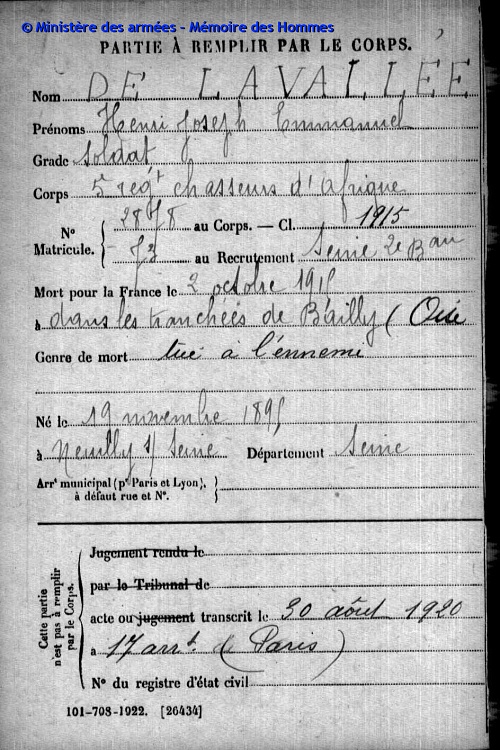 © Ministère des armées - Mémoire des Hommes
PARTIE À REMPLIR PAR LE CORPS.
Nom DE LAVALLÉE
Prénoms Henri Joseph Emmanuel
Grade Soldat
Corps 5e regt chasseurs d'afrique
N° Matricule. { 2878 au Corps. — Cl. 1915
73 au Recrutement Seine 2e Bau
Mort pour la France le 2 octobre 1915
à dans les tranchées de Bailly (Oise
Genre de mort tué à l'énnemi
Né le 19 novembre 1895
à Neuilly s/ Seine Département Seine
Arrt municipal (pr Paris et Lyon),
à défaut rue et N°.
Cette partie n'est pas à remplir par le Corps.
Jugement rendu le
par le Tribunal de
acte ou jugement transcrit le 30 aôut 1920
à 17 arrt. (Paris)
N° du registre d'état civil
101-708-1922. [26434]